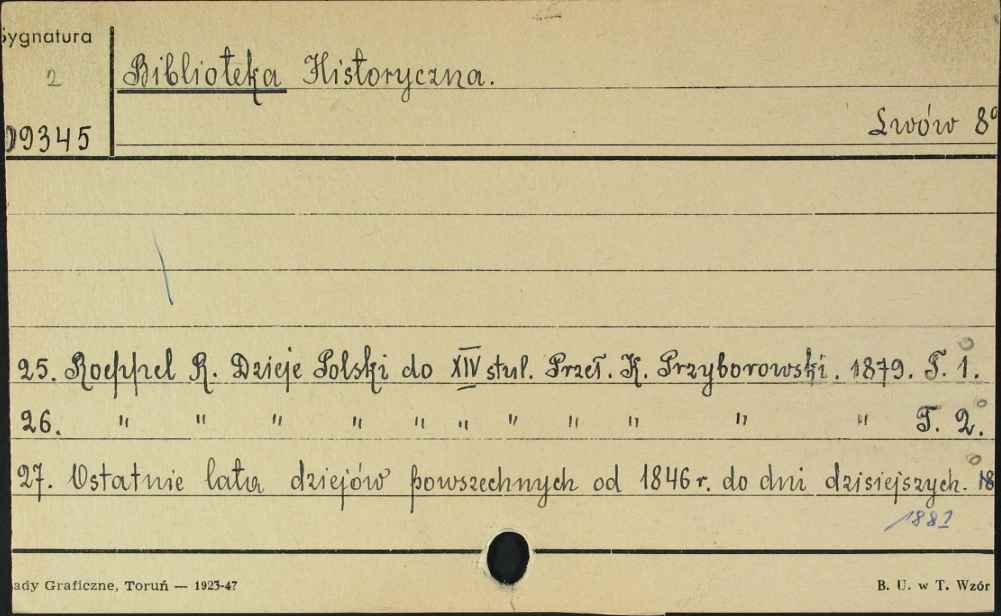 Sygnatura
2
Biblioteka Historyczna.
Lwów 8º
09345
25. Roeppel R. Dzieje Polski do XIV stul. Przeł. K. Przyborowski. 1879. T. 1.
26. " " " " " " " " " " " T. 2.
27. Ostatnie lata dziejów powszechnych od 1846 r. do dni dzisiejszych. 18
1881
ady Graficzne, Toruń — 1923-47
B. U. w T. Wzór